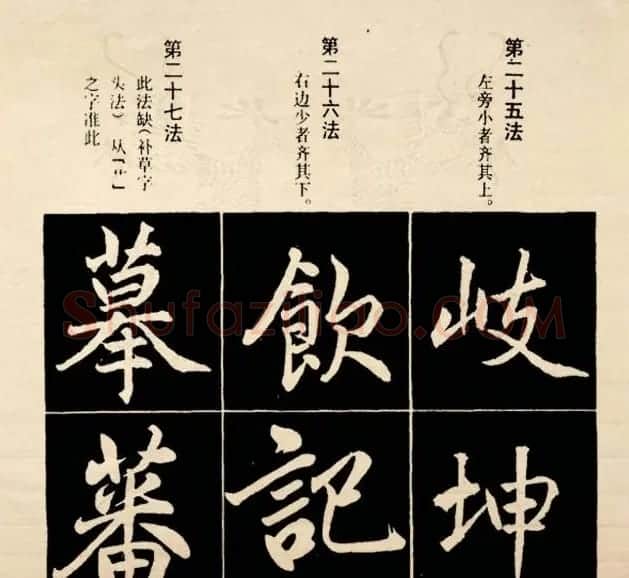 第二十五法
左旁小者齐其上。
岐
坤
第二十六法
右边少者齐其下。
飲
記
第二十七法
此法缺(补草字
头法) 从「艹」
之字准此
摹
蕃
Shufaziliao.COM